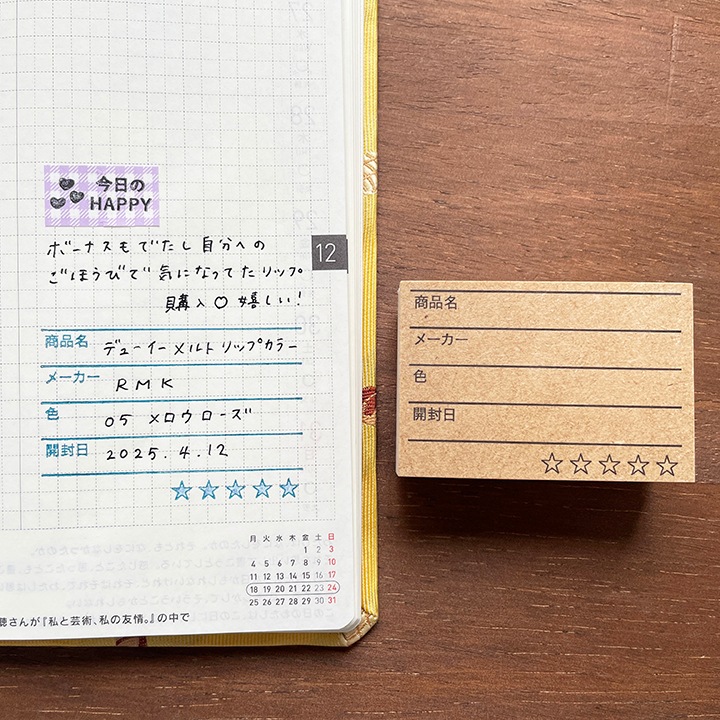 今日の
HAPPY
ボーナスもでたし自分への
ごほうびで気になってたリップ
購入♡嬉しい!
12
商品名 デューイーメルトリップカラー
メーカー RMK
色 05 メロウローズ
開封日 2025.4.12
☆☆☆☆☆
月 火 水 木 金 土 日
1 2 3
4 5 6 7 8 9 10
11 12 13 14 15 16 17
18 19 20 21 22 23 24
25 26 27 28 29 30 31
聴さんが『私と芸術、私の友情。』の中で
商品名
メーカー
色
開封日
☆☆☆☆☆